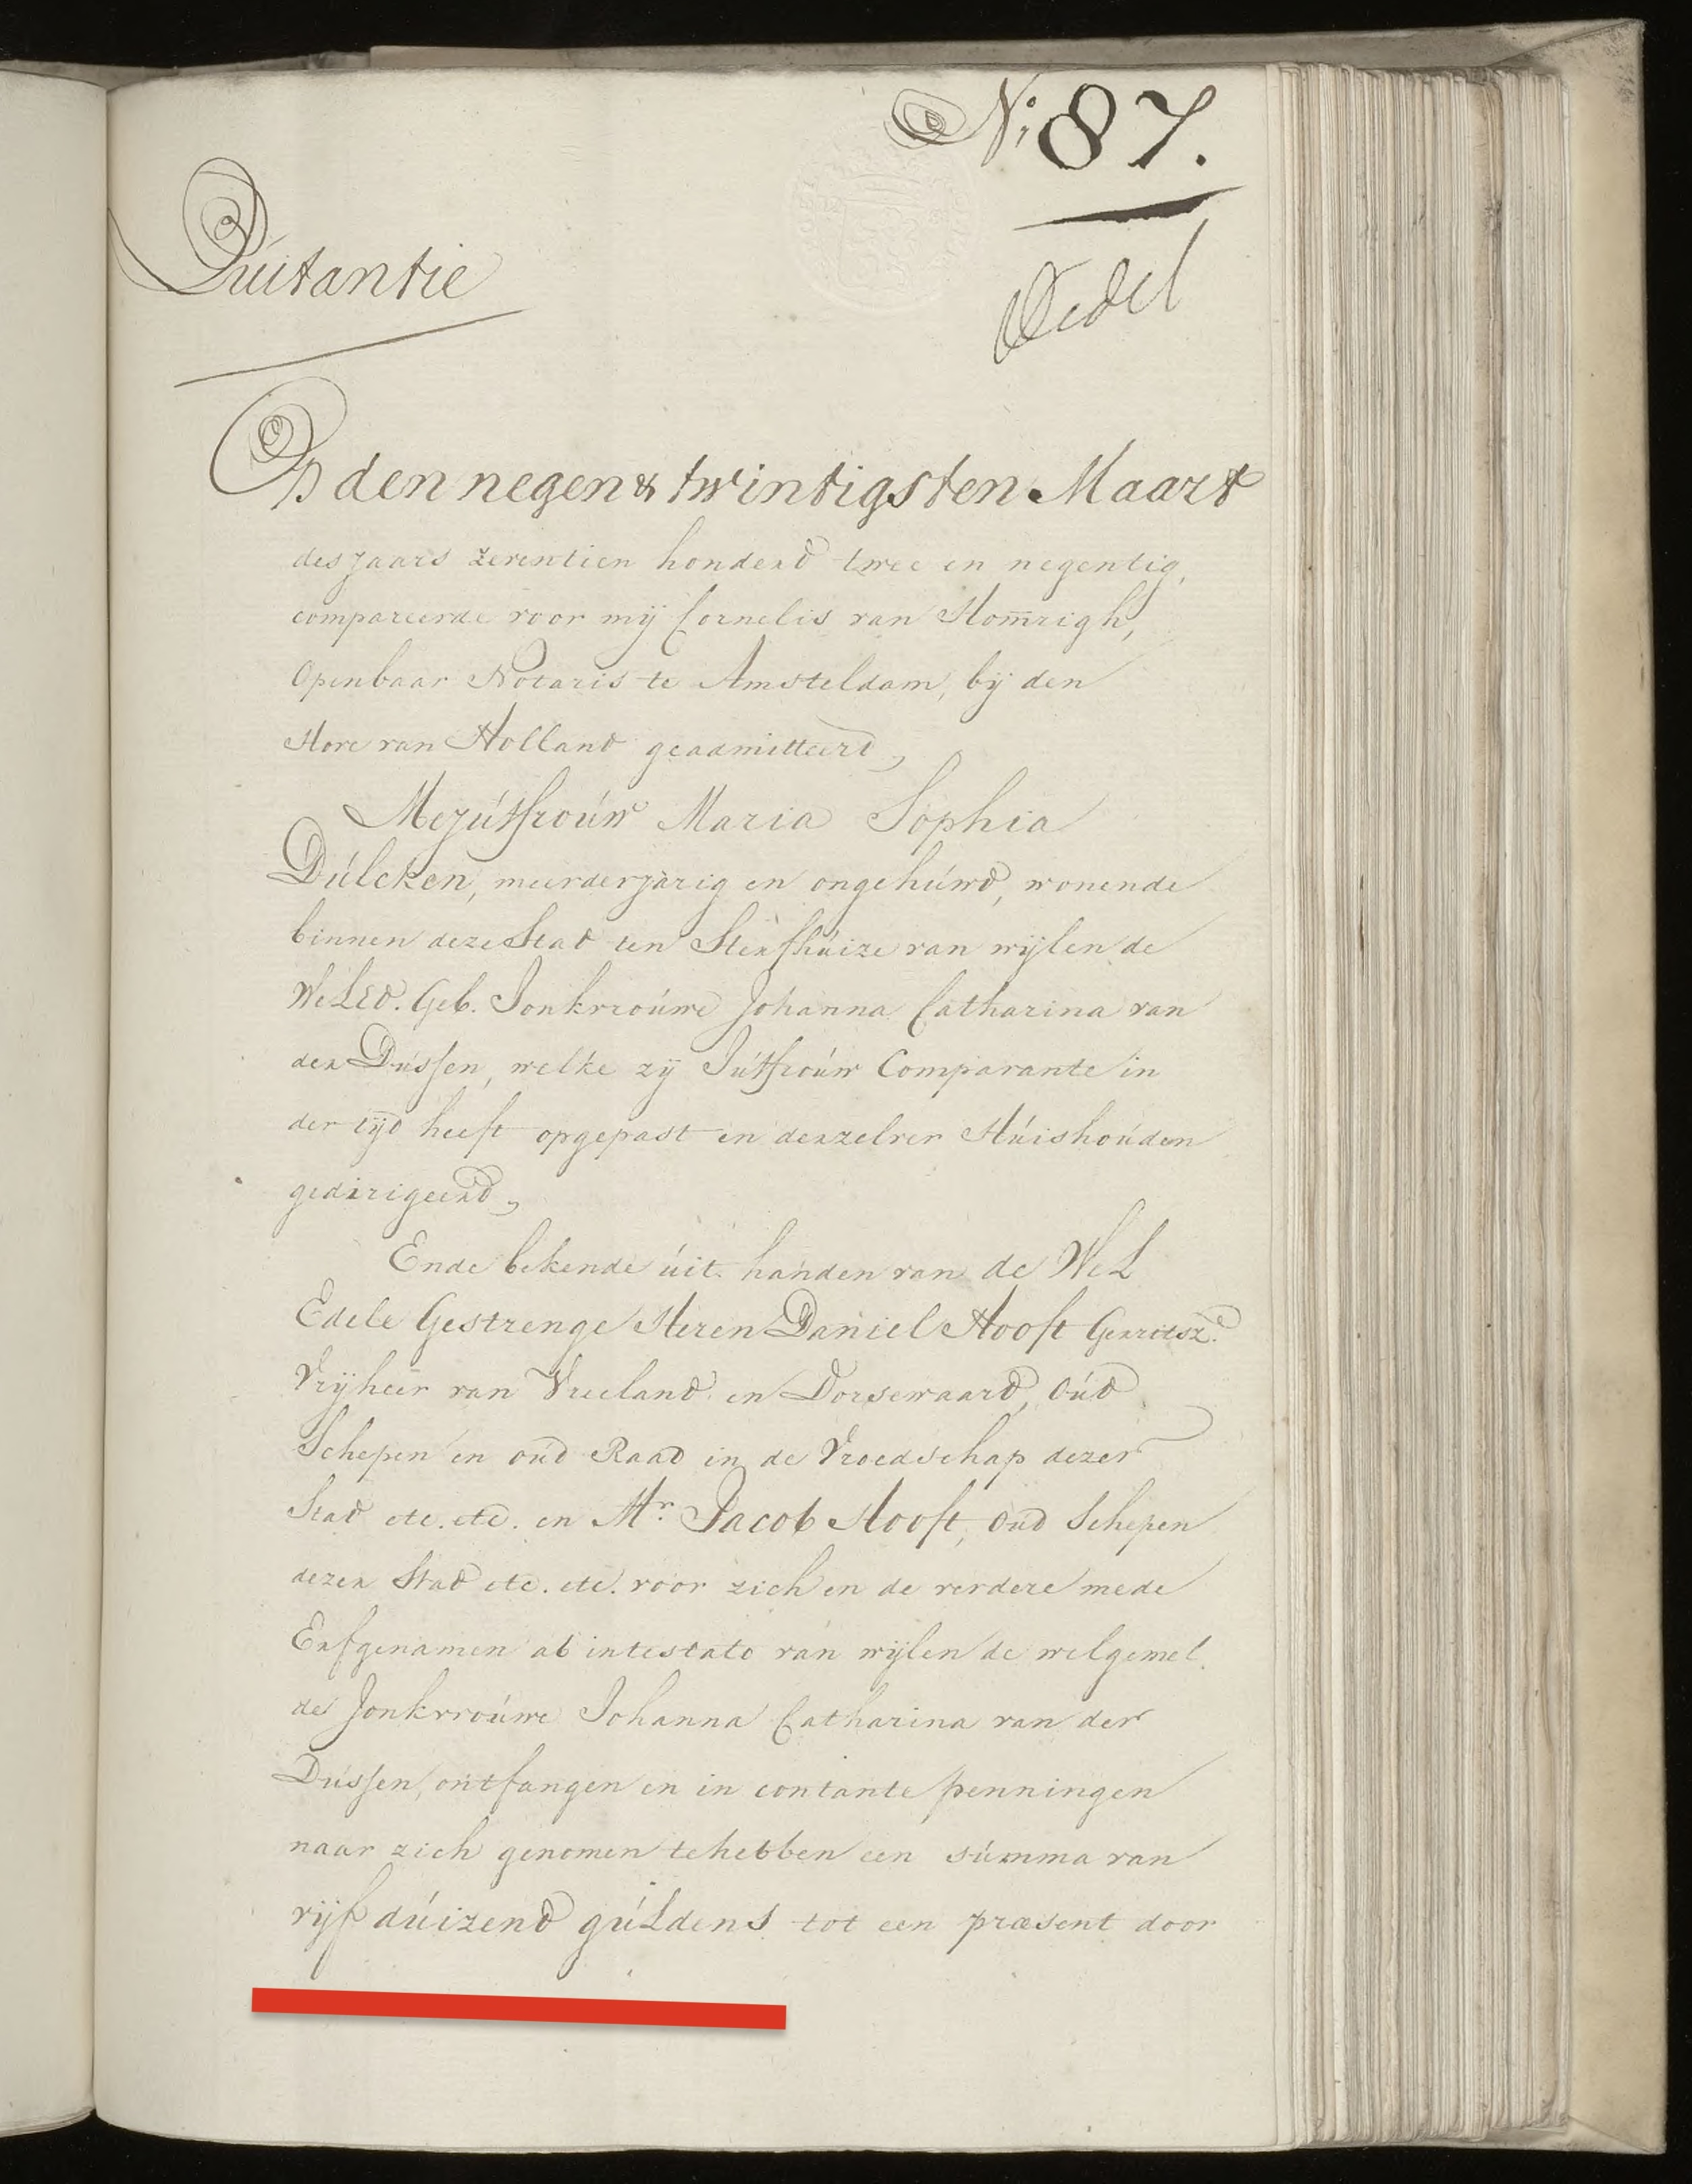 No 87.
Quitantie
Dedel
Op den negen & twintigsten Maart
des jaars zeventien honderd twee en negentig,
compareerde voor mij Cornelis van Hom̄righ,
Openbaar Notaris te Amsteldam, bij den
Hove van Holland geadmitteerd,
Mejúffroúw Maria Sophia
Dúlcken, meerderjarig en ongehúwd, wonende
binnen deze Stad ten Sterfhúize van wijlen de
WelEd. Geb. Jonkvroúwe Johanna Catharina van
der Dussen, welke zij Júffroúw Comparante in
der tijd heeft opgepast en derzelver Húishoúden
gedirigeerd,
Ende bekende úit handen van de Wel
Edele Gestrenge Heren Daniel Hooft Gerritsz.
Vrijheer van Vreeland en Dorsewaard, Oúd
Schepen en oúd Raad in de Vroedschap dezer
Stad etc. etc. en Mr. Jacob Hooft, Oud Schepen
dezer Stad etc. etc. voor zich en de verdere mede
Erfgenamen ab intestato van wijlen de welgemel
de Jonkvroúwe Johanna Catharina van der
Dussen, ontfangen en in contante penningen
naar zich genomen te hebben een súmma van
vijf dúizend gúldens tot een præsent door